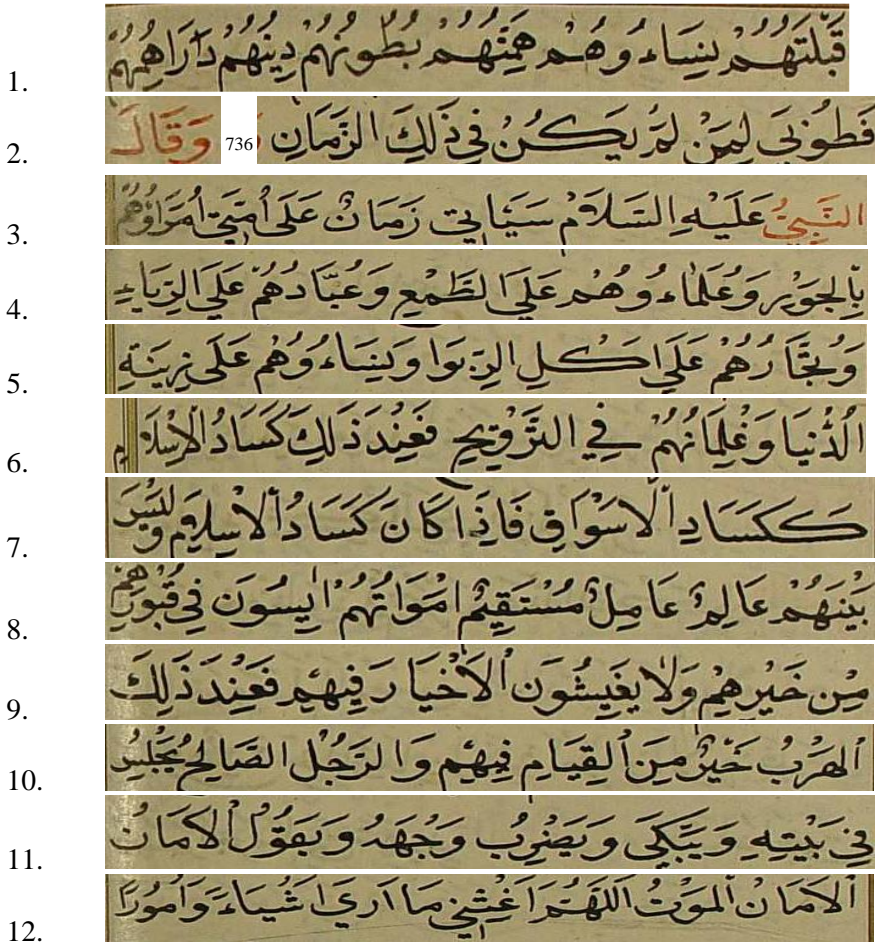 1. قِبْلَتُهُمْ نِسَاءُوهُمْ هِمَّتُهُمْ بُطُونُهُمْ دِينُهُمْ دَرَاهِمُهُمْ
2. فَطُوبَى لِمَنْ لَمْ يَكُنْ فِي ذَلِكَ الزَّمَانِ 736 وَقَالَ
3. النَّبِيُّ عَلَيْهِ السَّلَامُ سَيَأْتِي زَمَانٌ عَلَى أُمَّتِي أُمَرَاؤُهُمْ
4. بِالْجَوْرِ وَعُلَمَاءُوهُمْ عَلَى الطَّمْعِ وَعُبَّادُهُمْ عَلَى الرِّيَاءِ
5. وَتُجَّارُهُمْ عَلَى اَكْلِ الرِّبَوا وَنِسَاءُوهُمْ عَلَى زِينَةِ
6. الدُّنْيَا وَغُلِمَانُهُمْ فِي التَّزْوِيجِ فَعِنْدَ ذَلِكَ كَسَادُ الْاِسْلَامِ
7. كَكَسَادِ الْاَسْوَاقِ فَاِذَا كَانَ كَسَادُ الْاِسْلَامِ وَلَيْسَ
8. بَيْنَهُمْ عَالِمٌ عَامِلٌ مُسْتَقِيمٌ اَمْوَاتُهُمْ اٰيِسُونَ فِي قُبُورِهِمْ
9. مِنْ خَيْرِهِمْ وَلَا يَعِيشُونَ الْاَخْيَارَ فِيهِمْ فَعِنْدَ ذَلِكَ
10. اَلْهَرْبُ خَيْرٌ مِنَ الْقِيَامِ فِيهِمْ وَالرَّجُلُ الصَّالِحُ يَجْلِسُ
11. فِي بَيْتِهِ وَيَبْكِي وَيَضْرِبُ وَجْهَهُ وَيَقُولُ الْاَمَانُ
12. اَلْاَمَانُ الْمَوْتُ اَللَّهُمَّ اَغِثْنِي مَا اَرَي اَشْيَاءَ وَاُمُورًا